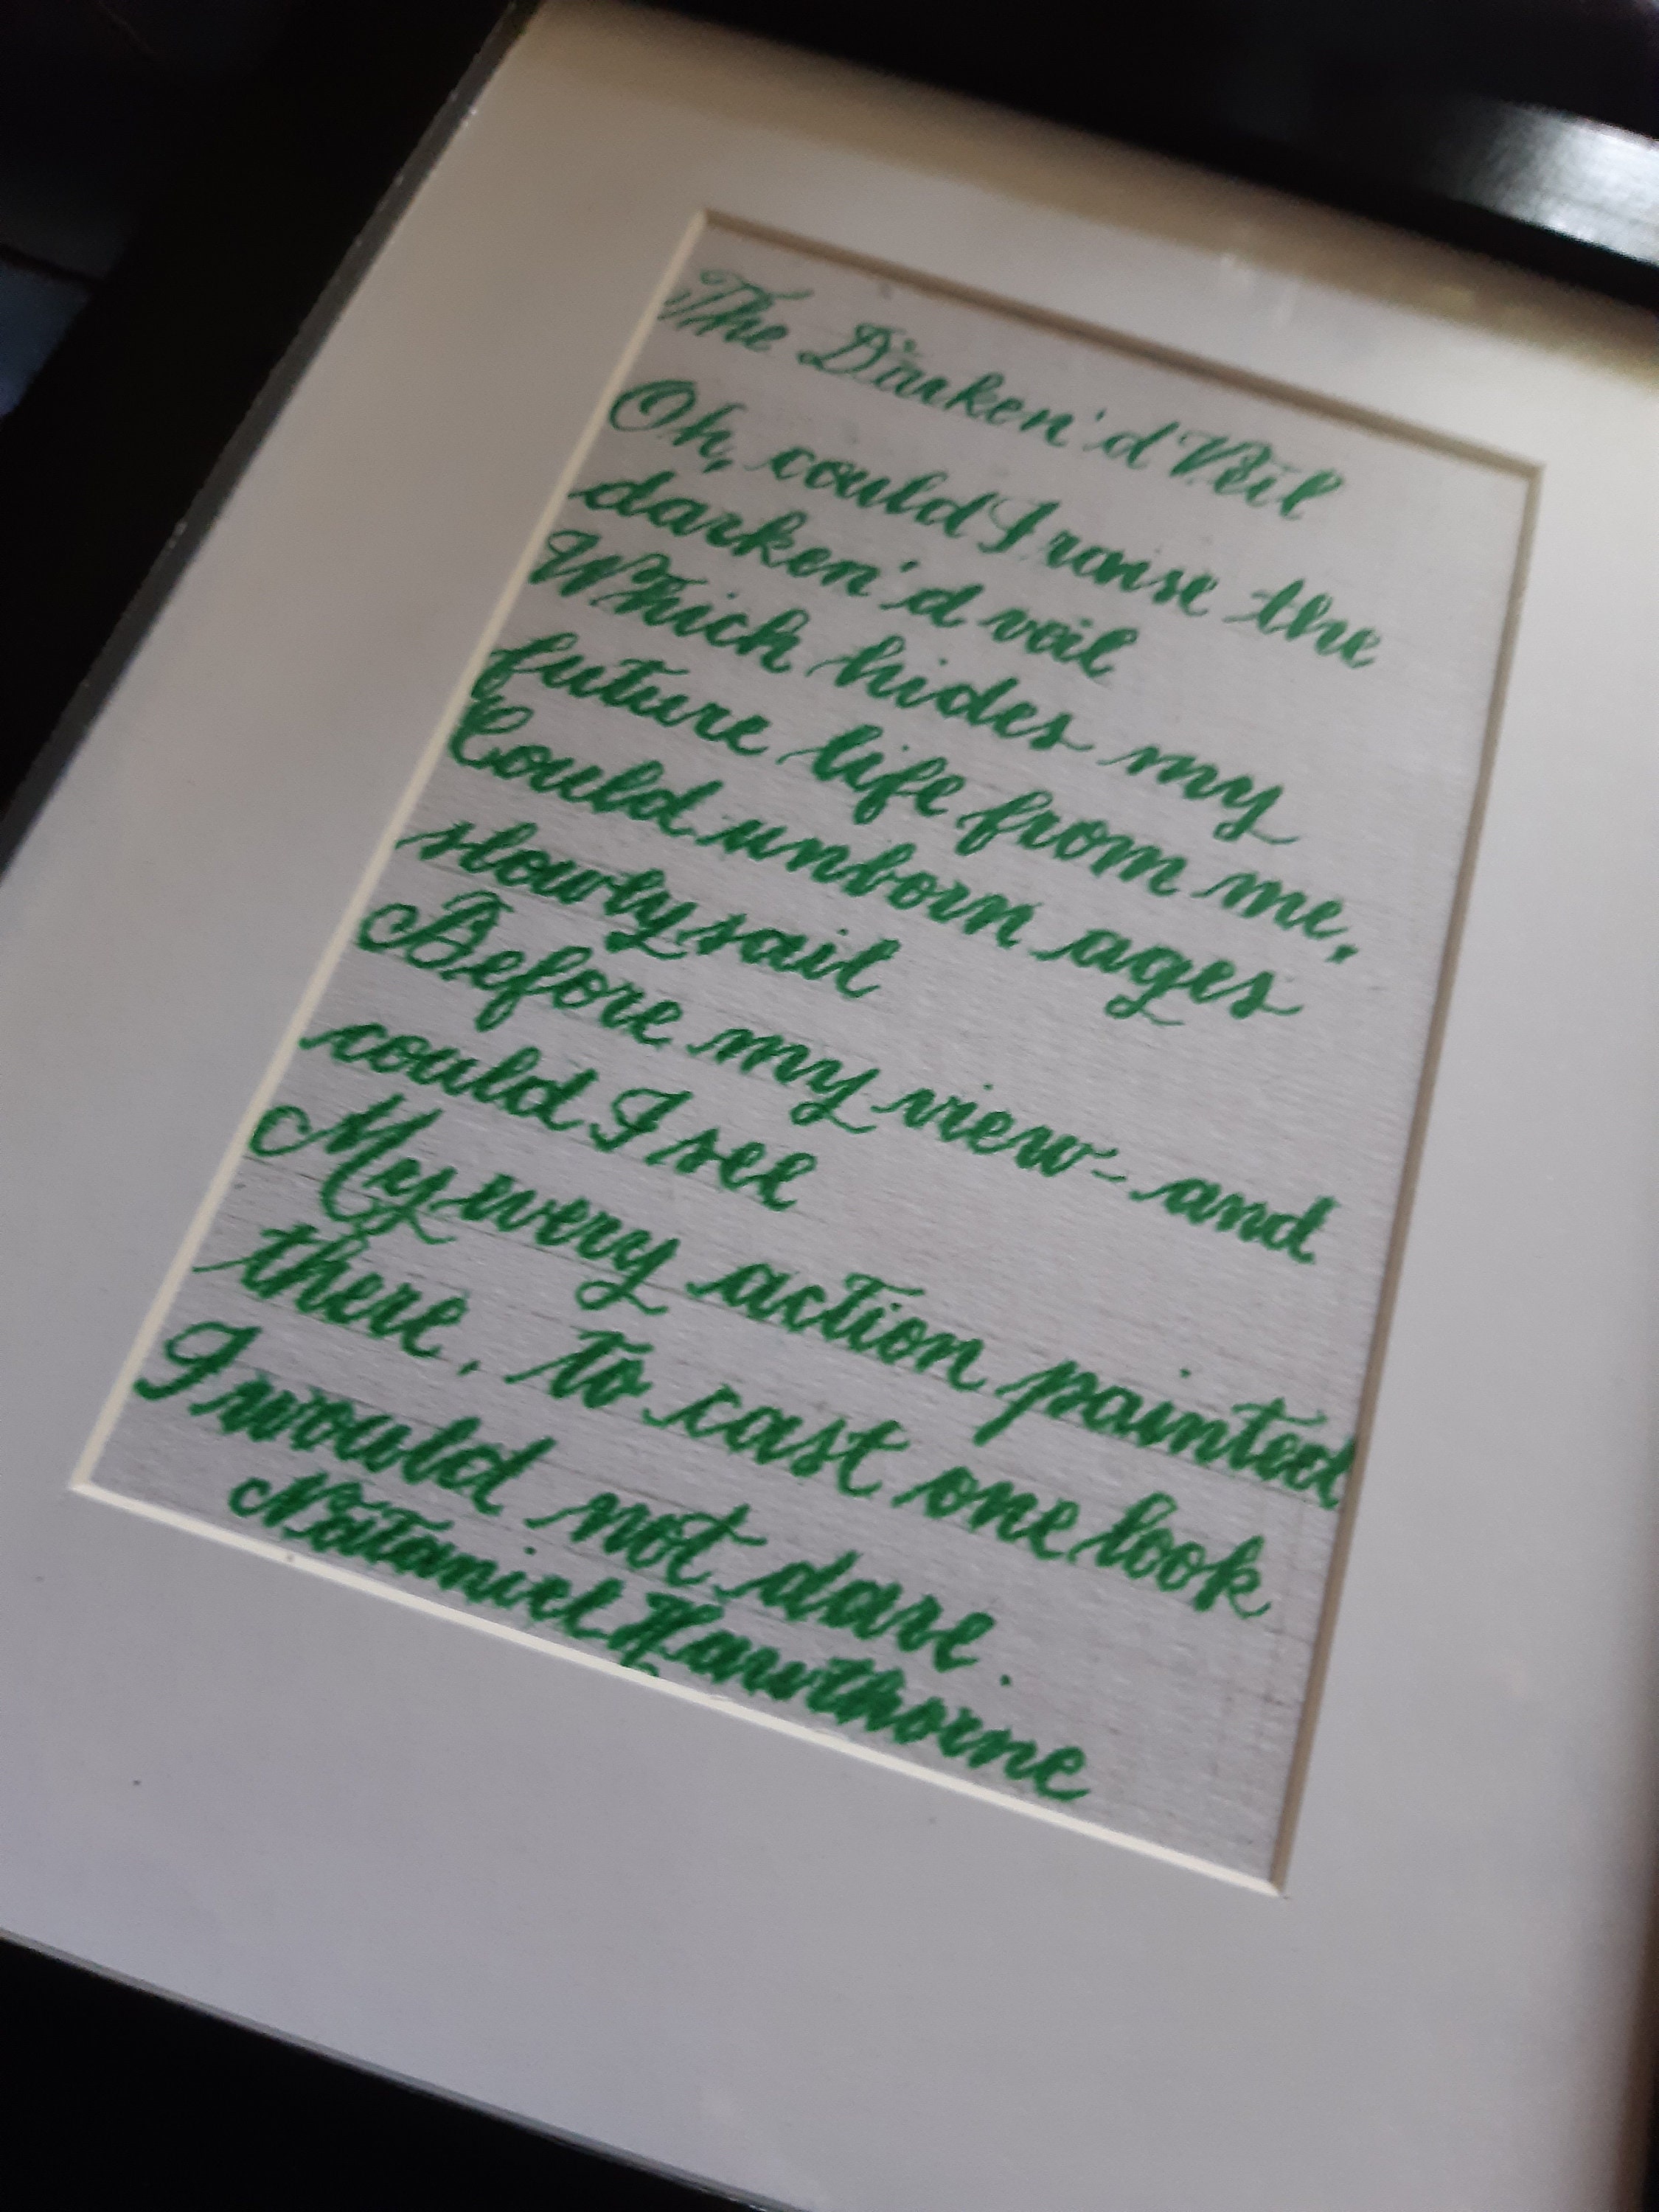 The Darken'd Veil
Oh, could I raise the
darken'd veil
Which hides my
future life from me,
Could unborn ages
slowly sail
Before my view- and
could I see
My every action painted
there, to cast one look
I would not dare.
Nataniel Hawthorne